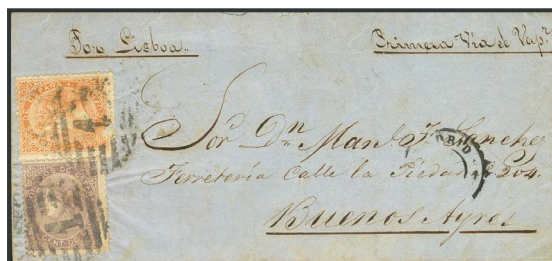 Por Lisboa.
Primera Via el Vapr
Sor Dn Manl F. Sanchez
Ferretería Calle la Piedad 204.
Buenos Ayres